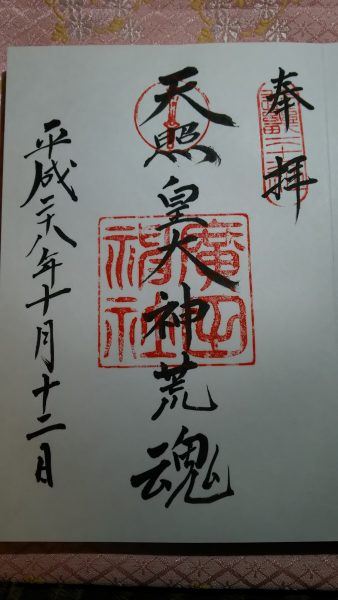 奉拝
天照皇大神荒魂
廣田神社
平成二十八年十月十二日